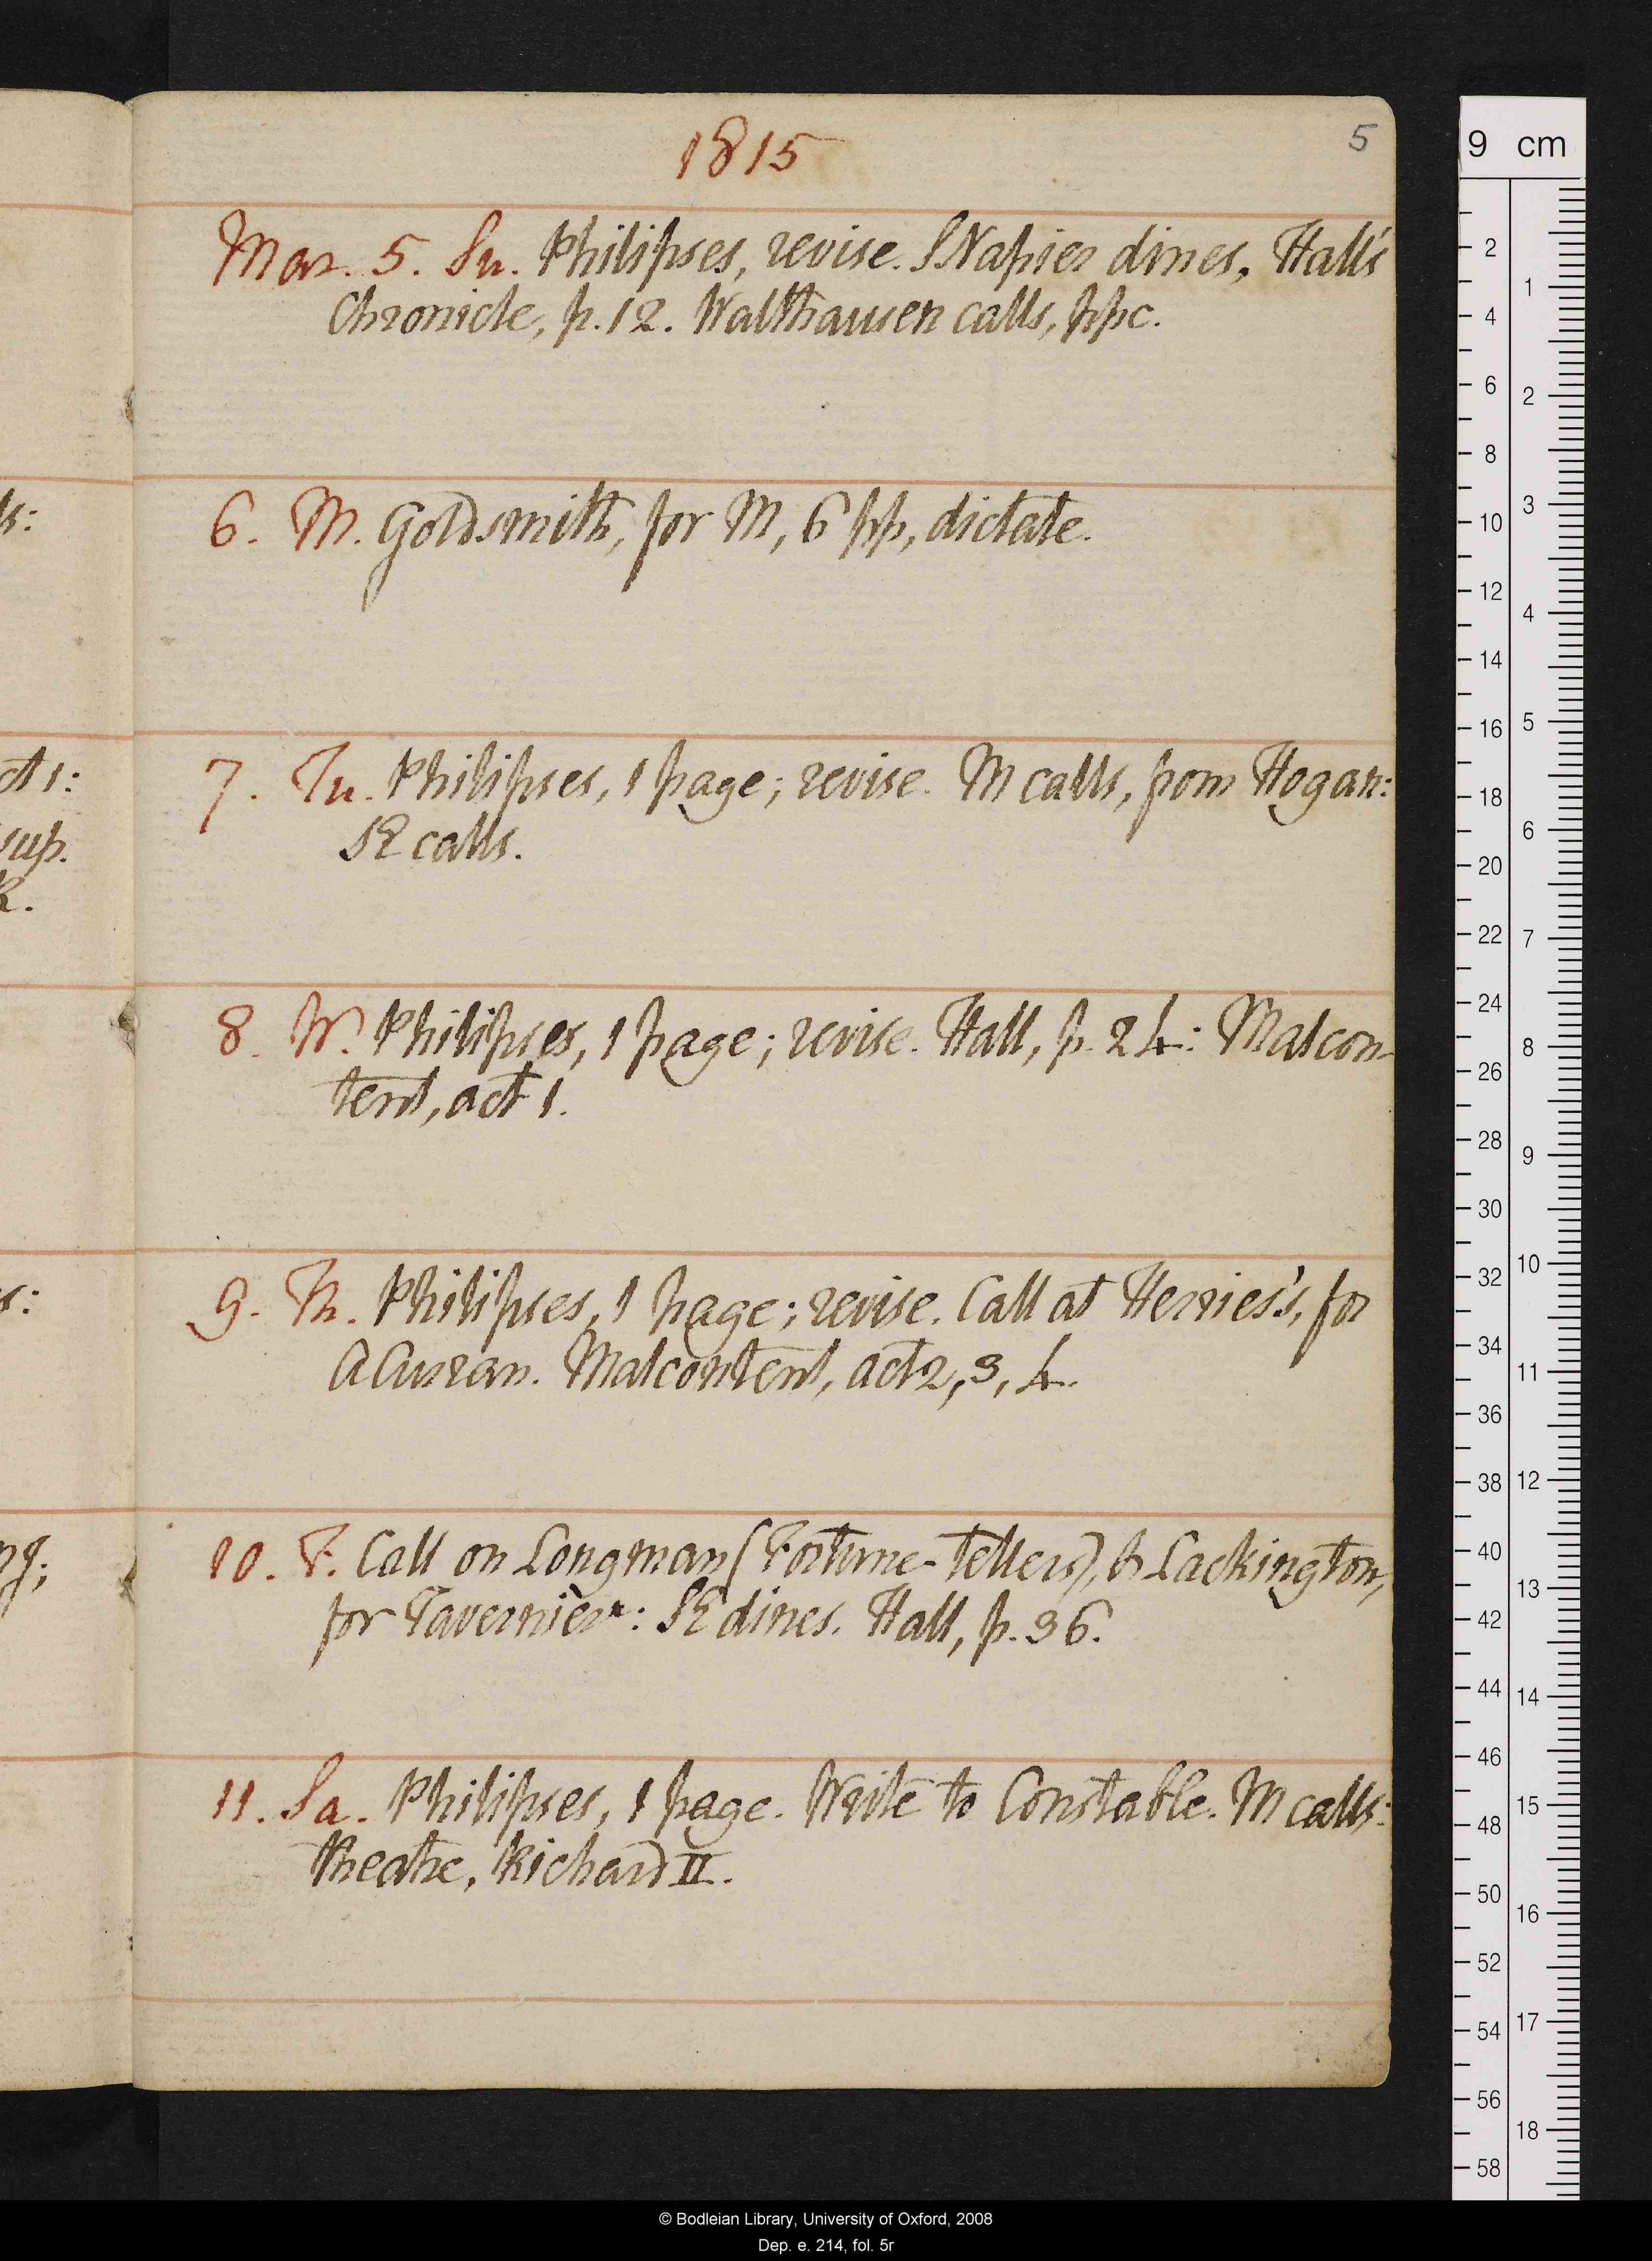 1815
5
Mar. 5. Su. Philipses, revise. S Napier dines. Hall's
Chronicle, p. 12. Walthausen calls, ppc.
6. M. Goldsmith, for M, 6 pp, dictate.
7. Tu. Philipses, 1 page; revise. M calls, from Hogan:
SE calls.
8. W. Philipses, 1 page; revise. Hall, p. 24: Malcon-
tent, act 1.
9. Th. Philipses, 1 page; revise. Call at Herries's, for
A Curran. Malcontent, act 2, 3, 4.
10. F. Call on Longman (Fortune-Tellers), & Lackington,
for Tavernier: SE dines. Hall, p. 36.
11. Sa. Philipses, 1 page. Write to Constable. M calls:
theatre, Richard II.
ls:
ct 1:
sup.
R.
s:
ng;
9 cm
2
4
6
8
10
12
14
16
18
20
22
24
26
28
30
32
34
36
38
40
42
44
46
48
50
52
54
56
58
1
2
3
4
5
6
7
8
9
10
11
12
13
14
15
16
17
18
© Bodleian Library, University of Oxford, 2008
Dep. e. 214, fol. 5r